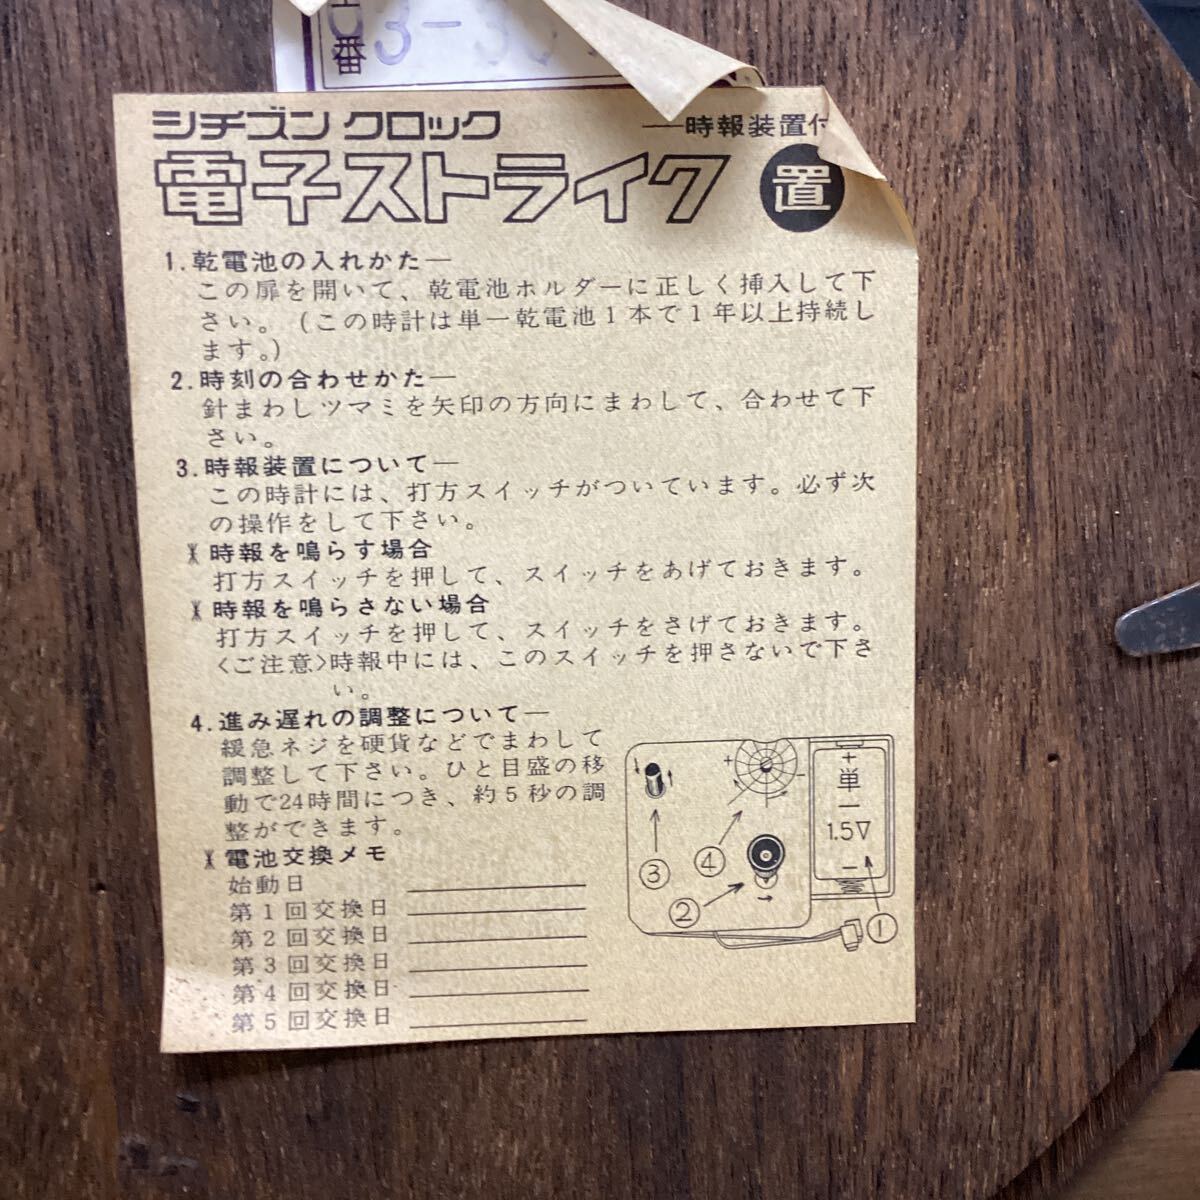 番 3-30
シチズン クロック
—時報装置付
電子ストライク 置
1.乾電池の入れかた—
この扉を開いて、乾電池ホルダーに正しく挿入して下
さい。(この時計は単一乾電池1本で1年以上持続し
ます。)
2.時刻の合わせかた—
針まわしツマミを矢印の方向にまわして、合わせて下
さい。
3.時報装置について—
この時計には、打方スイッチがついています。必ず次
の操作をして下さい。
※時報を鳴らす場合
打方スイッチを押して、スイッチをあげておきます。
※時報を鳴らさない場合
打方スイッチを押して、スイッチをさげておきます。
<ご注意>時報中には、このスイッチを押さないで下さ
い。
4.進み遅れの調整について—
緩急ネジを硬貨などでまわして
調整して下さい。ひと目盛の移
動で24時間につき、約5秒の調
整ができます。
※電池交換メモ
始動日
第1回交換日
第2回交換日
第3回交換日
第4回交換日
第5回交換日
+ −
+
単
一
1.5V
−
③ ④
② ①